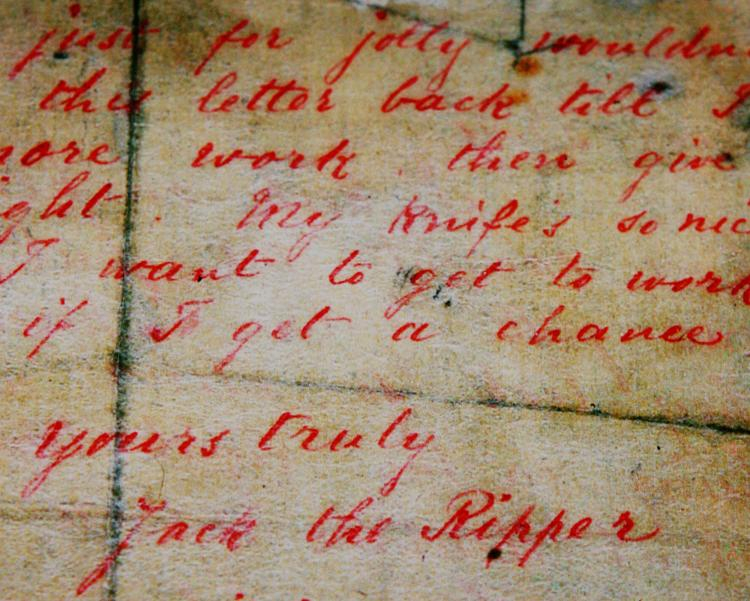 just for jolly wouldn
this letter back till I
ore work. then give
ght. My knife's so nic
I want to get to work
if I get a chance
yours truly
Jack the Ripper